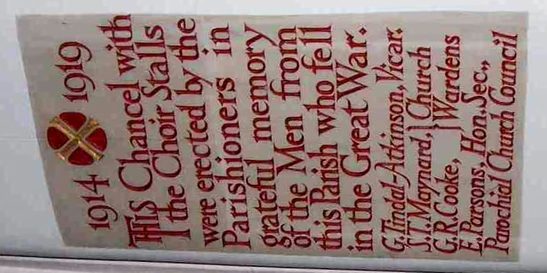 1914 1919
THIS Chancel with
the Choir Stalls
were erected by the
Parishioners in
grateful memory
of the Men from
this Parish who fell
in the Great War.
G. Tindal-Atkinson, Vicar.
S.T. Maynard, } Church
G.R. Cooke, } Wardens
E. Parsons, Hon. Sec.,
Parochial Church Council